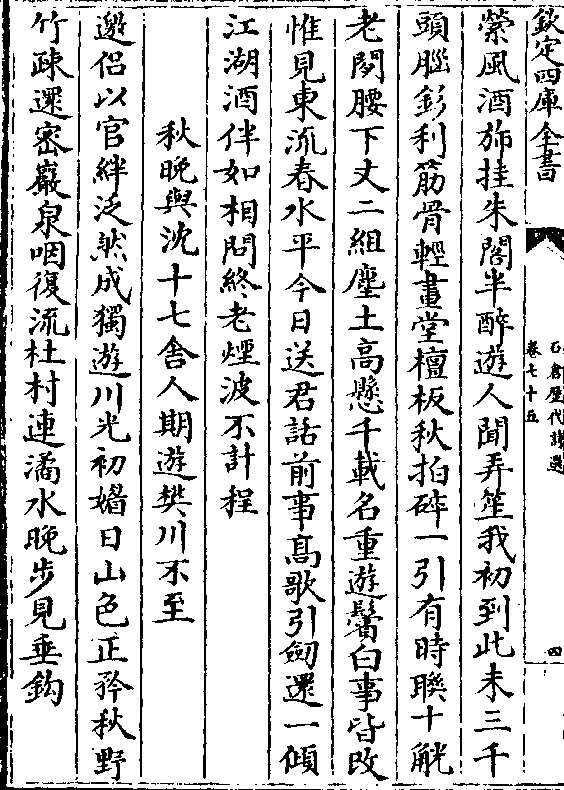 欽定四庫全書
石倉歷代詩選
卷七十五
四
縈風酒斾挂朱閣半醉遊人聞弄笙我初到此未三千
頭腦釤利筋骨輕畫堂檀板秋拍碎一引有時聯十觥
老閑腰下丈二組塵土高懸千載名重遊鬢白事皆改
惟見東流春水平今日送君話前事髙歌引劒還一傾
江湖酒伴如相問終老煙波不計程
秋晚與沈十七舍人期遊樊川不至
邀侣以官絆泛然成獨遊川光初媚日山色正矜秋野
竹疎還密巖泉咽復流杜村連潏水晚步見垂鈎